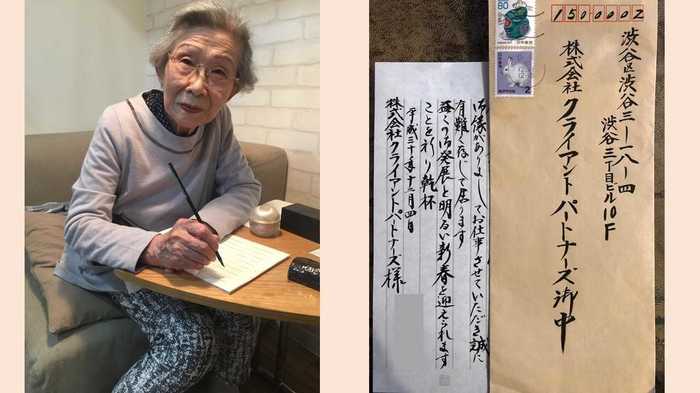 1500002
渋谷区渋谷三ー一八ー四
渋谷三丁目ビル10F
株式会社クライアントパートナーズ御中
80
2
御縁がありましてお仕事させていただき誠に
有難く存じて居ります
益々の御発展と明るい新春を迎えられます
ことを祈り乾杯
平成三十年十二月四日
株式会社クライアントパートナーズ様